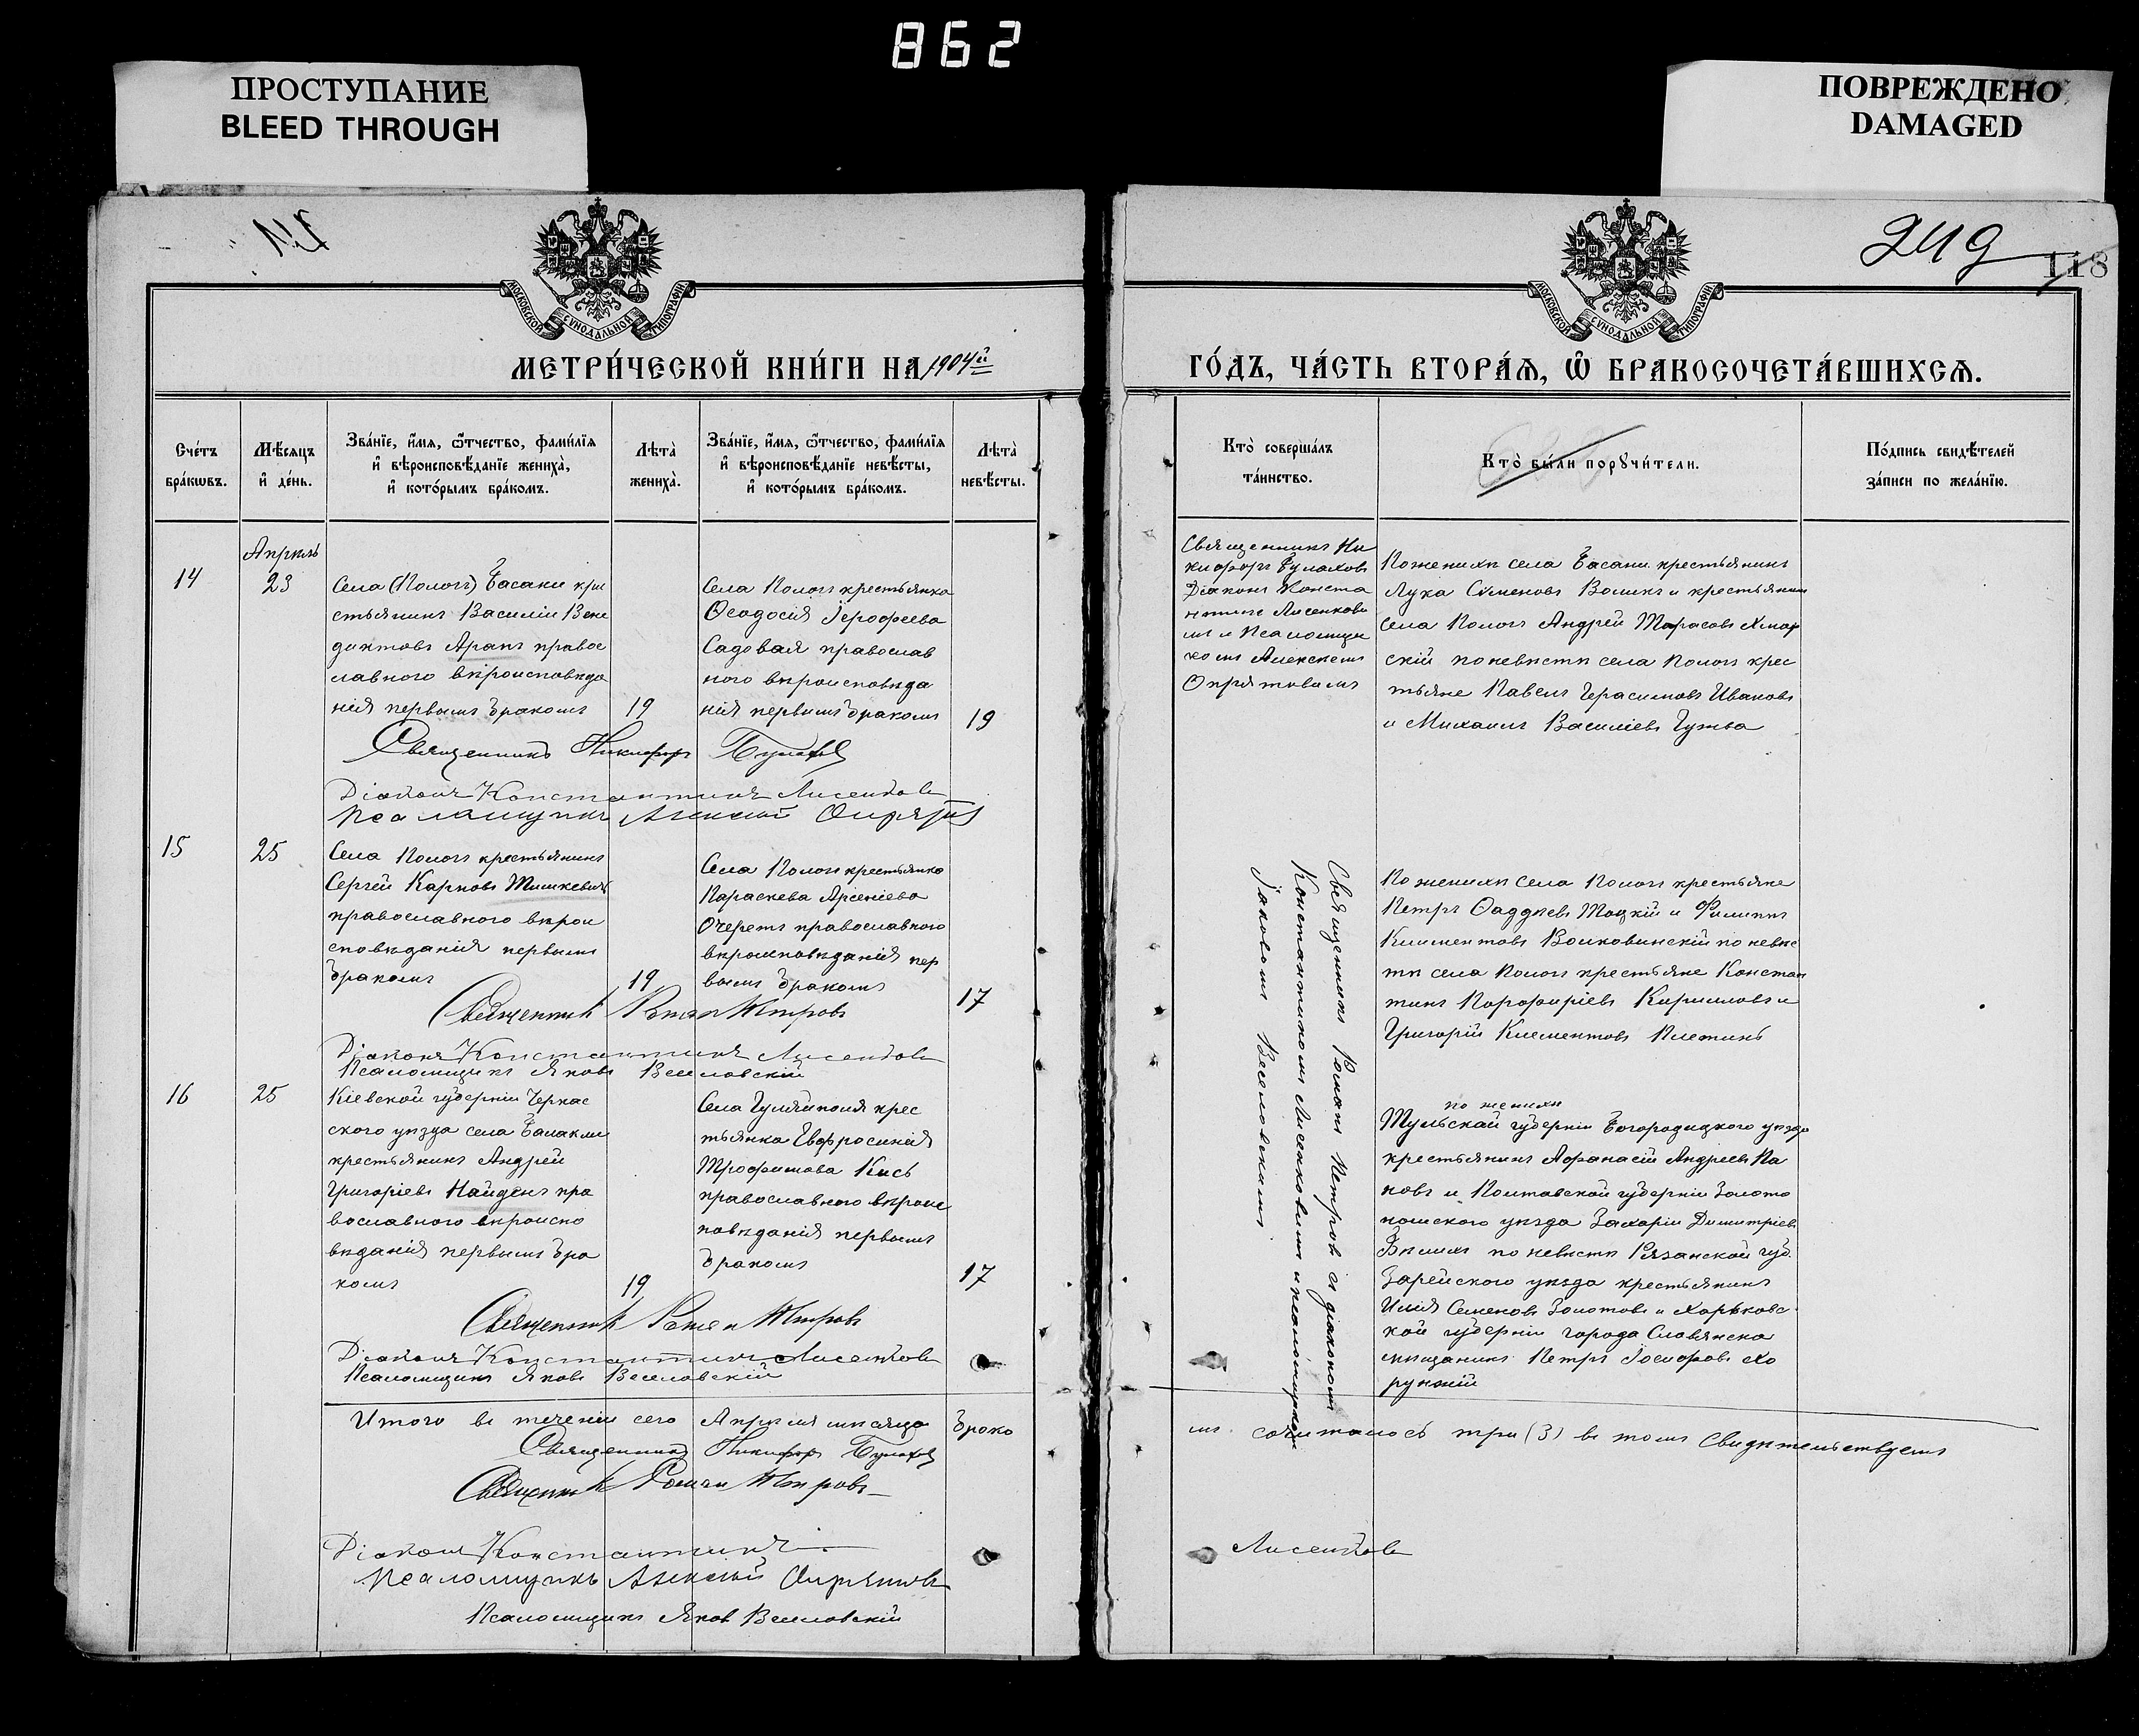 862
ПРОСТУПАНИЕ
BLEED THROUGH
ПОВРЕЖДЕНО
DAMAGED
249
118
МОСКОВСКОЙ СѴНОДАЛЬНОЙ ТИПОГРАФІИ
МОСКОВСКОЙ СѴНОДАЛЬНОЙ ТИПОГРАФІИ
МЕТРИ́ЧЕСКОЙ КНИ́ГИ НА 1904й
ГО́ДЪ, ЧА́СТЬ ВТОРА́Ѧ, Ѽ БРАКОСОЧЕТА́ВШИХСѦ.
Сче́тъ
бра́кѡвъ.
Мѣ́сяцъ
и҆ де́нь.
Зва́нїе, и҆́мя, ѻ҆́тчество, фами́лїя
и҆ вѣроисповѣ́данїе жениха̀,
и҆ кото́рымъ бра́комъ.
Лѣта̀
жениха̀.
Зва́нїе, и҆́мя, ѻ҆́тчество, фами́лїя
и҆ вѣроисповѣ́данїе невѣ́сты,
и҆ кото́рымъ бра́комъ.
Лѣта̀
невѣ́сты.
Кто̀ соверша́лъ
та́инство.
Кто̀ бы́ли порꙋчи́тели.
По́дпись свидѣ́телей
за́писи по жела́нїю.
Апрѣль
14
23
Села (Пологъ) Басани кре
стьянинъ Василій Вене
диктовъ Арапъ правос
лавного вѣроисповѣда
нія первымъ бракомъ
19
Села Пологъ крестьянка
Ѳеодосія Іерофеева
Садовая православ
ного вѣроисповѣда
нія первымъ бракомъ
19
Священникъ Ни
кифоръ Булахов
Діаконъ Конста
нтинъ Лисенкови
мъ и Псаломщи
комъ Алексѣемъ
Опрятовымъ
По женихѣ села Басани крестьянинъ
Лука Сѵменовъ Воликъ и крестьянин
села Пологъ Андрей Тарасовъ Хмар
скій по невѣстѣ села Пологъ крес
тьяне Павелъ Герасимовъ Ивановъ
и Михаилъ Василіевъ Гужва
Священникъ Никифоръ Булахов
Діаконъ Константинъ Лисенков
Псаломщикъ Алексѣй Опрятов
15
25
Села Пологъ крестьянинъ
Сергѣй Карповъ Тишкевичъ
православного вѣрои
сповѣданія первымъ
бракомъ
19
Села Пологъ крестьянка
Параскева Арсеніева
Очереть православного
вѣроисповѣданія пер
вымъ бракомъ
17
Священникъ Романъ Петровъ съ діакономъ
Константиномъ Лисенковымъ и псаломщикомъ
Іаковомъ Веселовскимъ
По женихѣ села Пологъ крестьяне
Петръ Ѳаддѣевъ Тоцкій и Филиппъ
Климентовъ Волковинскій по невѣс
тѣ села Пологъ крестьяне Констан
тинъ Порфиріевъ Кирилловъ и
Григорій Климентовъ Плетинь
Священникъ Романъ Петровъ
Діаконъ Константинъ Лисенков
Псаломщикъ Яковъ Веселовскій
16
25
Кіевской губерніи Черкас
ского уѣзда села Балаклеи
крестьянинъ Андрей
Григоріевъ Найденъ пра
вославного вѣроиспо
вѣданія первымъ бра
комъ
19
Села Гуляйполя крес
тьянка Евфросинія
Трофимова Кись
православного вѣроис
повѣданія первымъ
бракомъ
17
по женихѣ
Тульской губерніи Богородицкого уѣзда
крестьянинъ Афанасій Андреевъ По
повъ и Полтавской губерніи Золото
ношского уѣзда Захарій Димитріевъ
по невѣстѣ Рязанской губ.
Зарейского уѣзда крестьянинъ
Илія Семеновъ Золотовъ и Харьковс
кой губерніи города Славянска
мѣщанинъ Петръ Іосифовъ Хо
рунжій
Священникъ Романъ Петровъ
Діаконъ Константинъ Лисенков
Псаломщикъ Яковъ Веселовскій
Итого въ теченіи сего Апрѣля мѣсяца брако
мъ сочиталось три (3) въ томъ Свидѣтельствуемъ
Священникъ Никифоръ Булахов
Священникъ Романъ Петровъ
Діаконъ Константинъ Лисенков
Псаломщикъ Алексѣй Опрятовъ
Псаломщикъ Яков Веселовскій